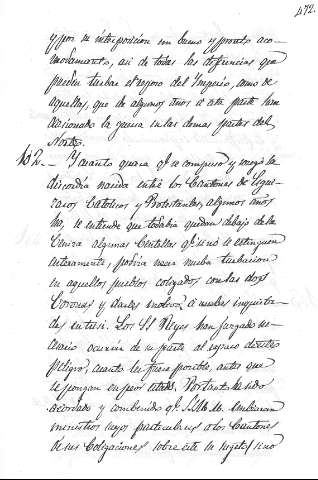 472.
y por su interposicion con bueno y pronto aco-
modamiento, asi de todas las diferencias que
pueden turbar el reposo del Imperio, como de
aquellas, que de algunos años a esta parte han
ocasionado la guerra en las demas partes del
Norte.
102. — Y cuanto quiera q.e se compuso y
discordia nacida entre los Cantones de Esgui-
zaros Católicos y Protestantes, algunos años
ha, se entiende que todabia quedan debajo de la
Ceniza algunas Centellas q.e si no se estinguen
enteramente, podria nacer nueba turbacion
en aquellos pueblos coligados con las dos
Coronas y darles motivos á muchas inquietu-
des entre si. Los SS. Reyes han juzgado ne-
cesario ocurrir de su parte al reparo de este
peligro, cuanto les fuere posible, antes que
se pongan en peor estado. Portanto ha sido
acordado y combenido q.e SS. MM. embiaran
ministros suyos particulares a los Cantones
de sus Coligaciones sobre este